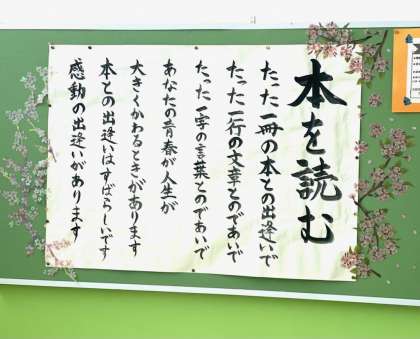 本を読む
たった一冊の本との出逢いで
たった一行の文章とのであいで
たった一字の言葉とのであいで
あなたの青春が人生が
大きくかわるときがあります
本との出逢いはすばらしいです
感動の出逢いがあります